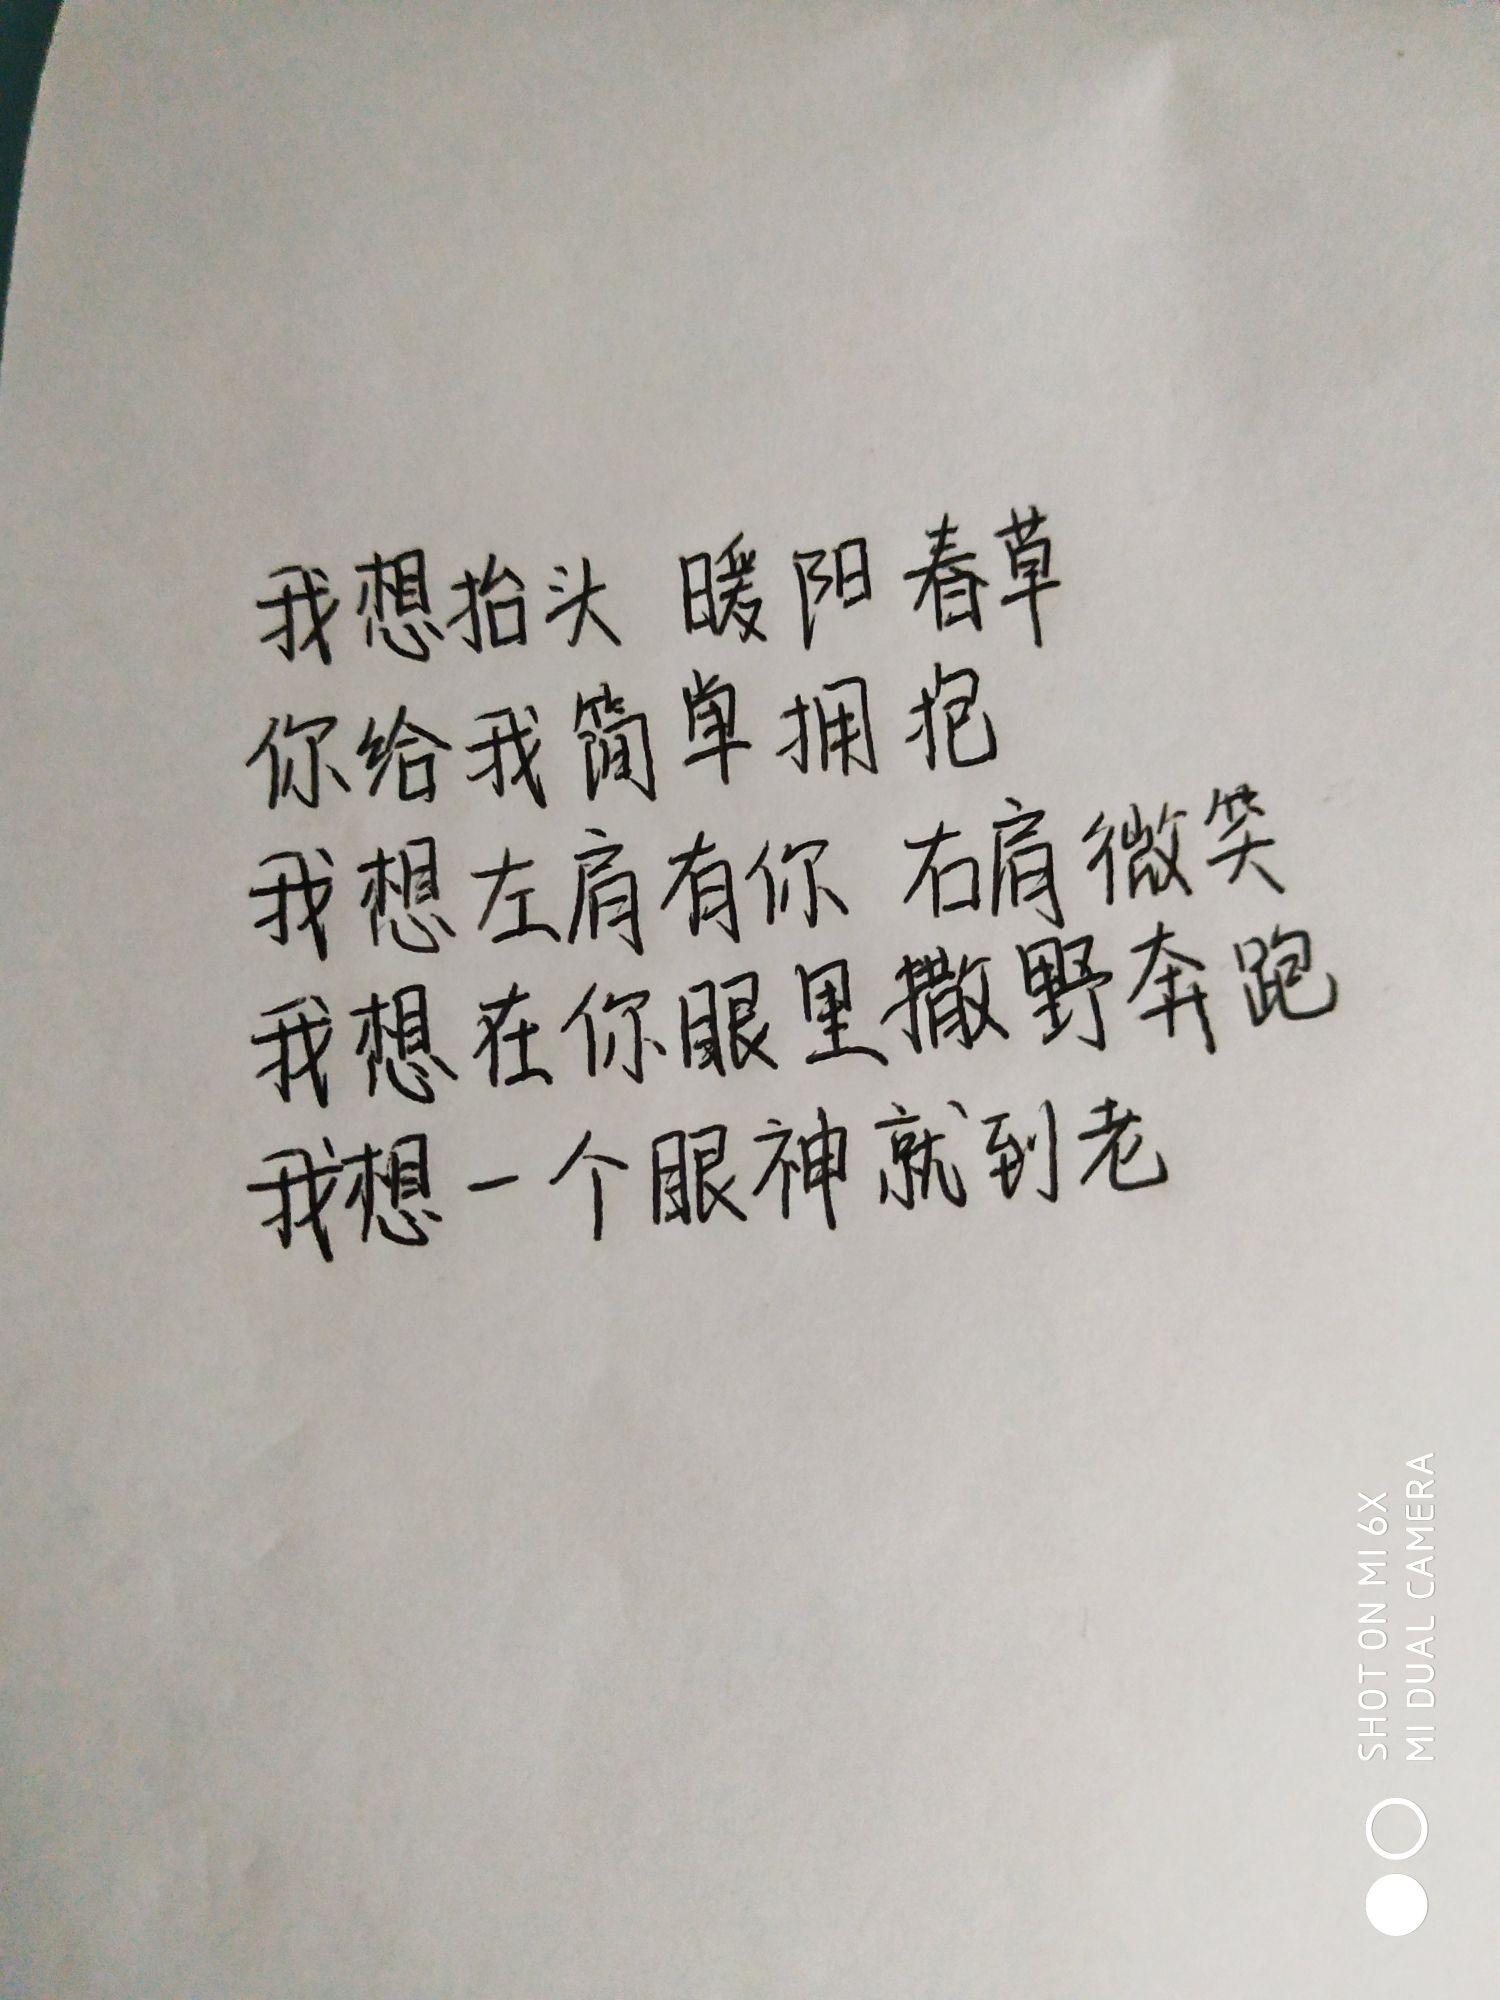 我想抬头 暖阳春草
你给我简单拥抱
我想左肩有你 右肩微笑
我想在你眼里撒野奔跑
我想一个眼神就到老
SHOT ON MI 6X
MI DUAL CAMERA